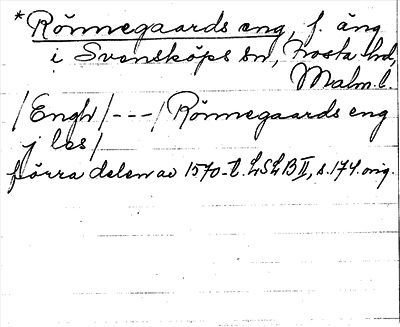 *Rönnegaards eng, f. äng
i Svensköps sn, Frosta hd,
Malm. l.
/Engh/ - - - / Rönnegaards eng
j les/
förra delen av 1570-t. LSLB II, s. 174. orig.